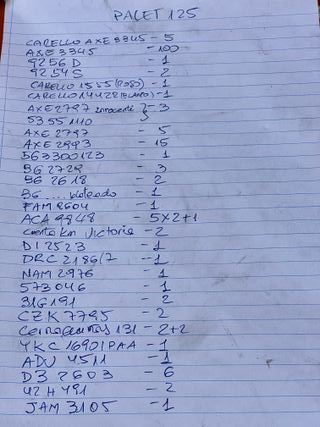 PALET 125
CARELLO AXE 3345 - 5
AXE 3345 - 100
9256 D - 1
9254 S - 2
CARELLO 1555 - 1
CARELLO 14428 - 1
AXE 2797 innocenti } - 3
5355 1110
AXE 2797 - 5
AXE 2993 - 15
563300123 - 1
BG 2729 - 3
BG 2618 - 2
BG ... - 1
FAM 2604 - 1
ACA 9848 - 5x2+1
km Victoria - 2
DI 2523 - 1
DRC 2186/7 - 1
NAM 2976 - 1
573046 - 1
31G191 - 2
CZK 7795 - 2
131 - 2+2
YKC 16901PAA - 1
ADU 4511 - 1
D3 2603 - 6
42H491 - 2
JAM 3105 - 1